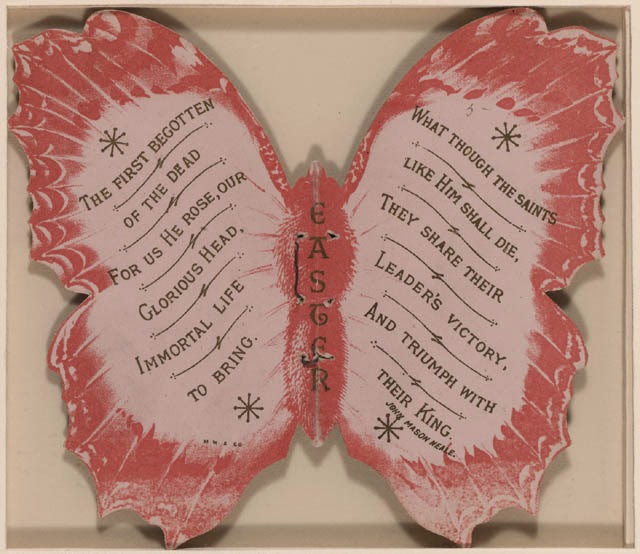 THE FIRST BEGOTTEN
OF THE DEAD
FOR US HE ROSE, OUR
GLORIOUS HEAD,
IMMORTAL LIFE
TO BRING.
EASTER
WHAT THOUGH THE SAINTS
LIKE HIM SHALL DIE,
THEY SHARE THEIR
LEADER'S VICTORY,
AND TRIUMPH WITH
THEIR KING
JOHN MASON NEALE.